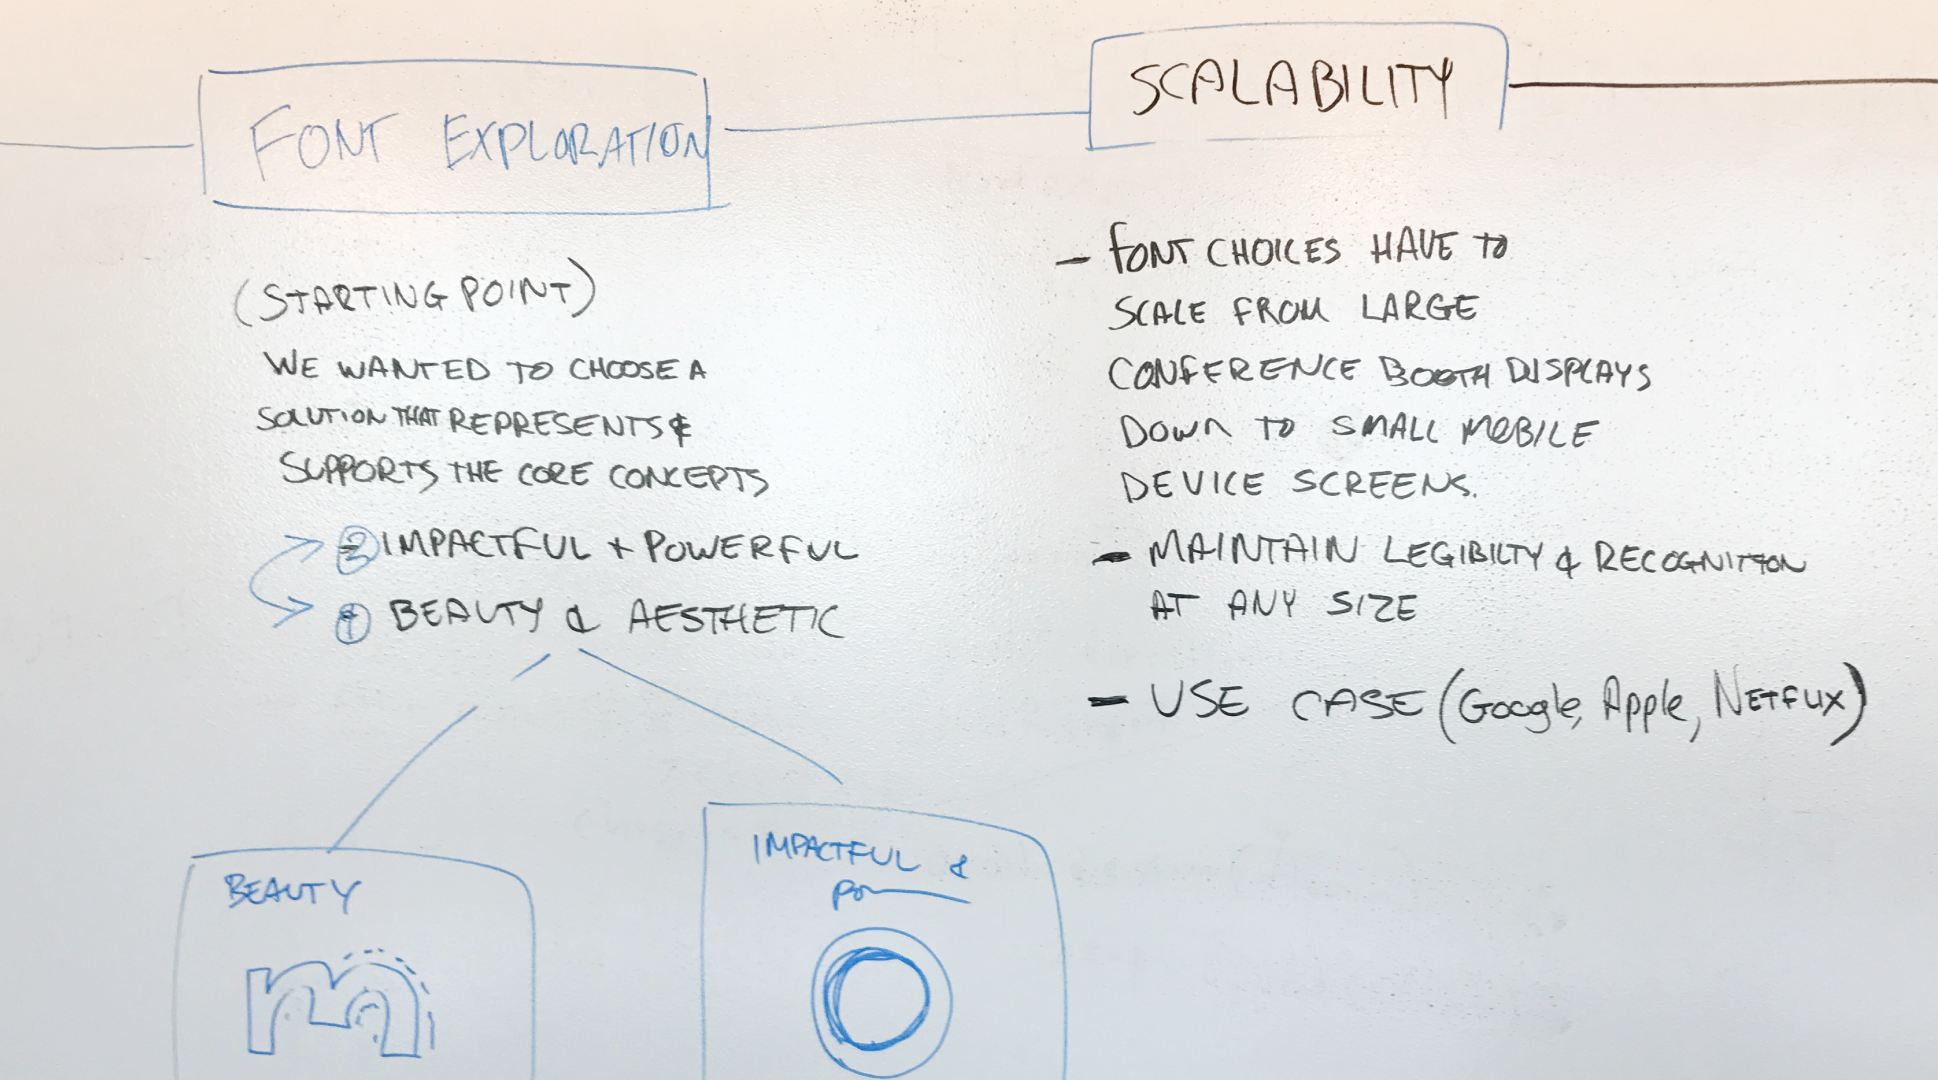 FONT EXPLORATION
(STARTING POINT)
WE WANTED TO CHOOSE A
SOLUTION THAT REPRESENTS &
SUPPORTS THE CORE CONCEPTS
② IMPACTFUL + POWERFUL
① BEAUTY & AESTHETIC
BEAUTY
m
IMPACTFUL &
SCALABILITY
- FONT CHOICES HAVE TO
SCALE FROM LARGE
CONFERENCE BOOTH DISPLAYS
DOWN TO SMALL MOBILE
DEVICE SCREENS.
- MAINTAIN LEGIBILTY & RECOGNITION
AT ANY SIZE
- USE CASE (Google, Apple, NETFLIX)